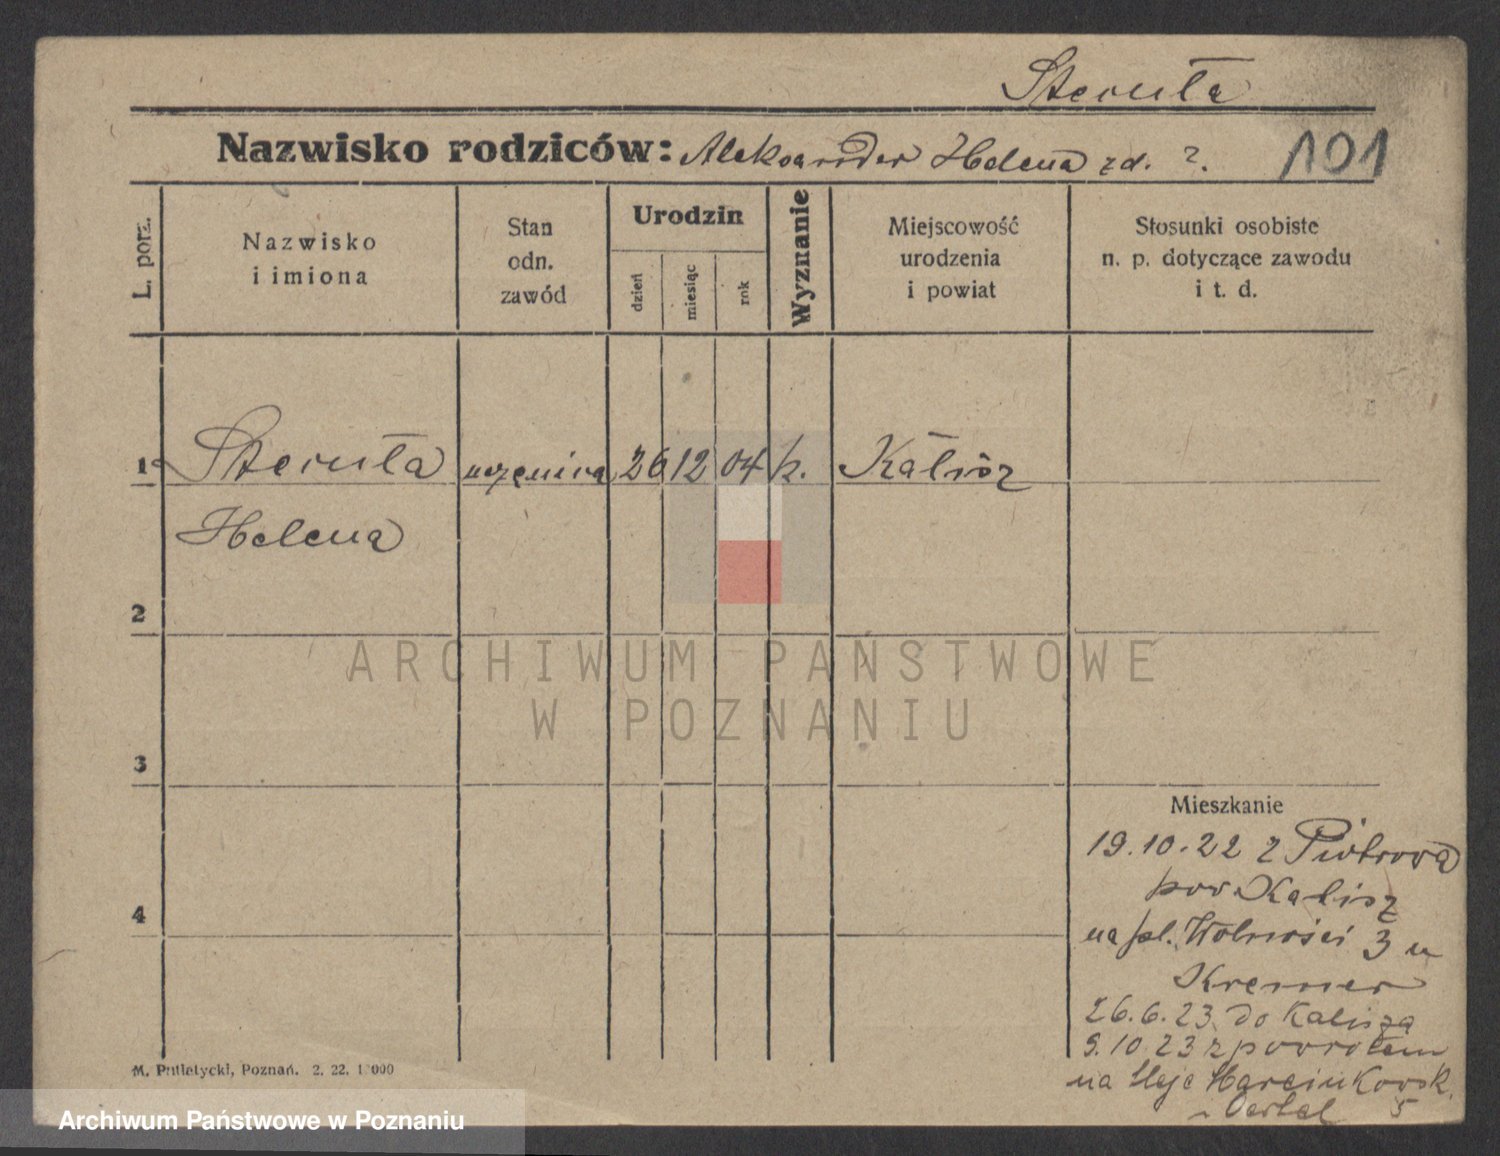 Steruła
Nazwisko rodziców: Aleksander Helena zd. ?.
101
L. porz.
Nazwisko
i imiona
Stan
odn.
zawód
Urodzin
dzień
miesiąc
rok
Wyznanie
Miejscowość
urodzenia
i powiat
Stosunki osobiste
n. p. dotyczące zawodu
i t. d.
1 Steruła uczenica 26 12 04 k. Kalisz
Helena
2
3
4
ARCHIWUM PAŃSTWOWE
W POZNANIU
Mieszkanie
19.10.22 z Piotrowa
pow Kalisz
na pl. Wolności 3 u
Kremer
26.6.23 do Kalisza
9.10 23 z powrotem
na Aleje Marcinkowsk.
5
M. Putiatycki, Poznań. 2. 22. 1000
Archiwum Państwowe w Poznaniu